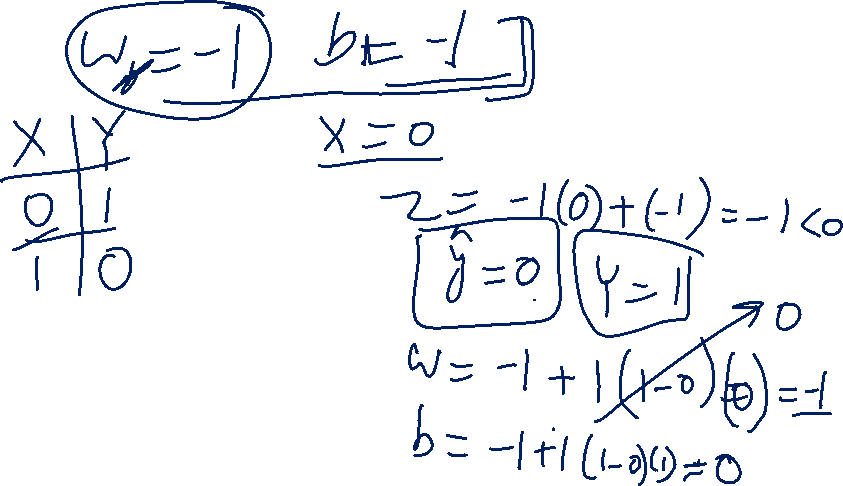 w = -1 b = -1
X Y
0 1
1 0
X = 0
z = -1(0)+(-1) = -1 < 0
ŷ = 0 Y = 1
0
w = -1 + 1(1-0)(0) = -1
b = -1+1(1-0)(1) = 0